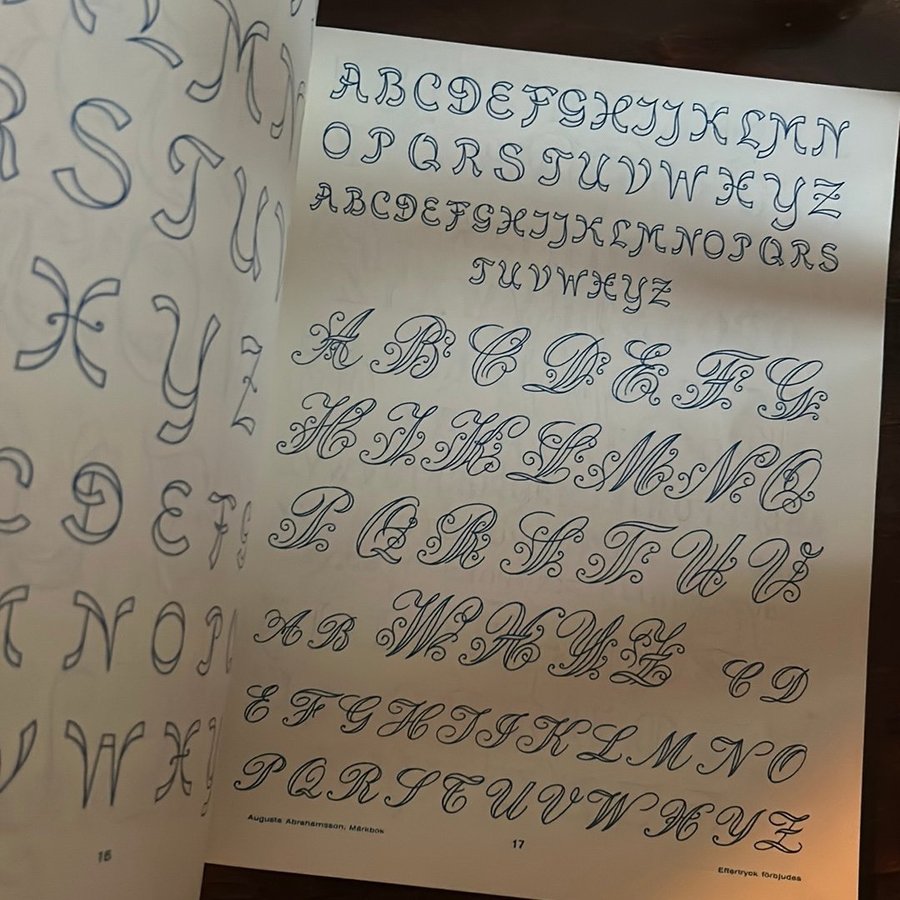 L M N
R S T U
X Y Z
C D E F G
N O P
V W X
16
A B C D E F G H I J K L M N
O P Q R S T U V W X Y Z
A B C D E F G H I J K L M N O P Q R S
T U V W X Y Z
A B C D E F G
H I K L M N O
P Q R S T U V
A B W X Y Z C D
E F G H I J K L M N O
P Q R S T U V W X Y Z
Auguste Abrahamsson, Märkbok
17
Eftertryck förbjudes